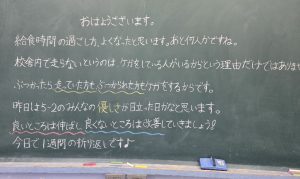 おはようございます。
給食時間の過ごし方、よくなったと思います。あと何人かですね。
校舎内で走らないというのは ケガをしている人がいるからという理由だけではありませ
ぶつかったら走っていた方も、ぶつかられた方もケガをするからです。
昨日は5-2のみんなの優しさが目立った日かなと思います。
良いところは伸ばし、良くないところは改善していきましょう!
今日で1週間の折り返しですよ